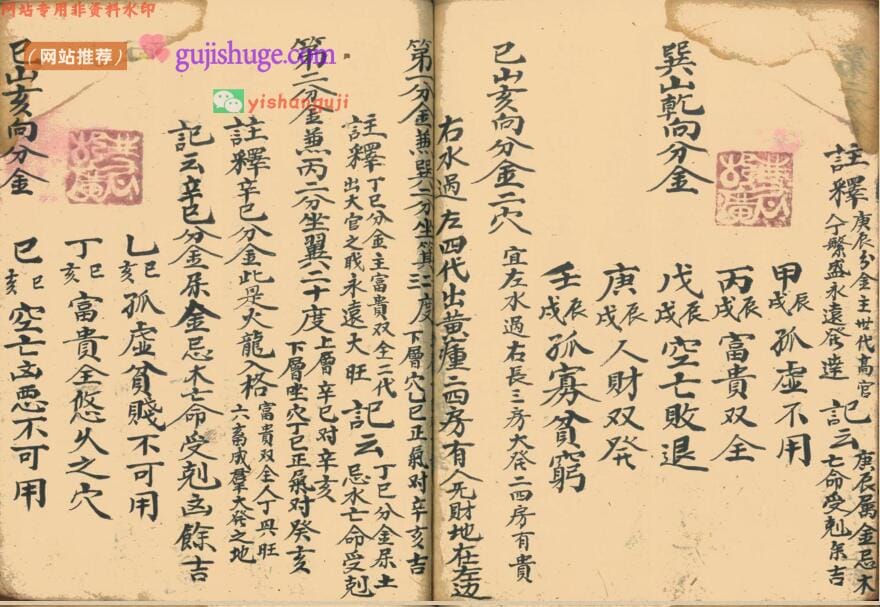 网站专用非资料水印
（网站推荐）
gujishuge.com
yishanguji
註釋 庚辰分金主世代高官
人丁繁盛永遠發達
記云 庚辰属金忌木
亡命受剋余吉
甲辰戌 孤虚不用
丙辰戌 富貴双全
戊辰戌 空亡敗退
庚辰戌 人財双発
壬辰戌 孤寡貧窮
巽山乾向分金
巳山亥向分金二穴 宜左水過右長三房大発二四房有貴
右水過左四代出黄瘇二四房有人死財地在左边
第一分金兼巽二分坐翼三度 下層穴乙巳正氣对辛亥吉
註釋 丁巳分金主富貴双全二代
出大官之戝永遠大旺
記云 丁巳分金屎土
忌水亡命受剋
第二分金兼丙二分坐翼二十度 上層辛巳对辛亥
下層坐穴丁巳正氣对癸亥
註釋 辛巳分金此是火龍入格 富貴双全人丁興旺
六畜成羣大発之地
記云辛巳分金屎金忌木亡命受剋凶餘吉
乙巳亥 孤虚貧賤不可用
丁巳亥 富貴全悠久之穴
己巳亥 空亡凶悪不可用
巳山亥向分金